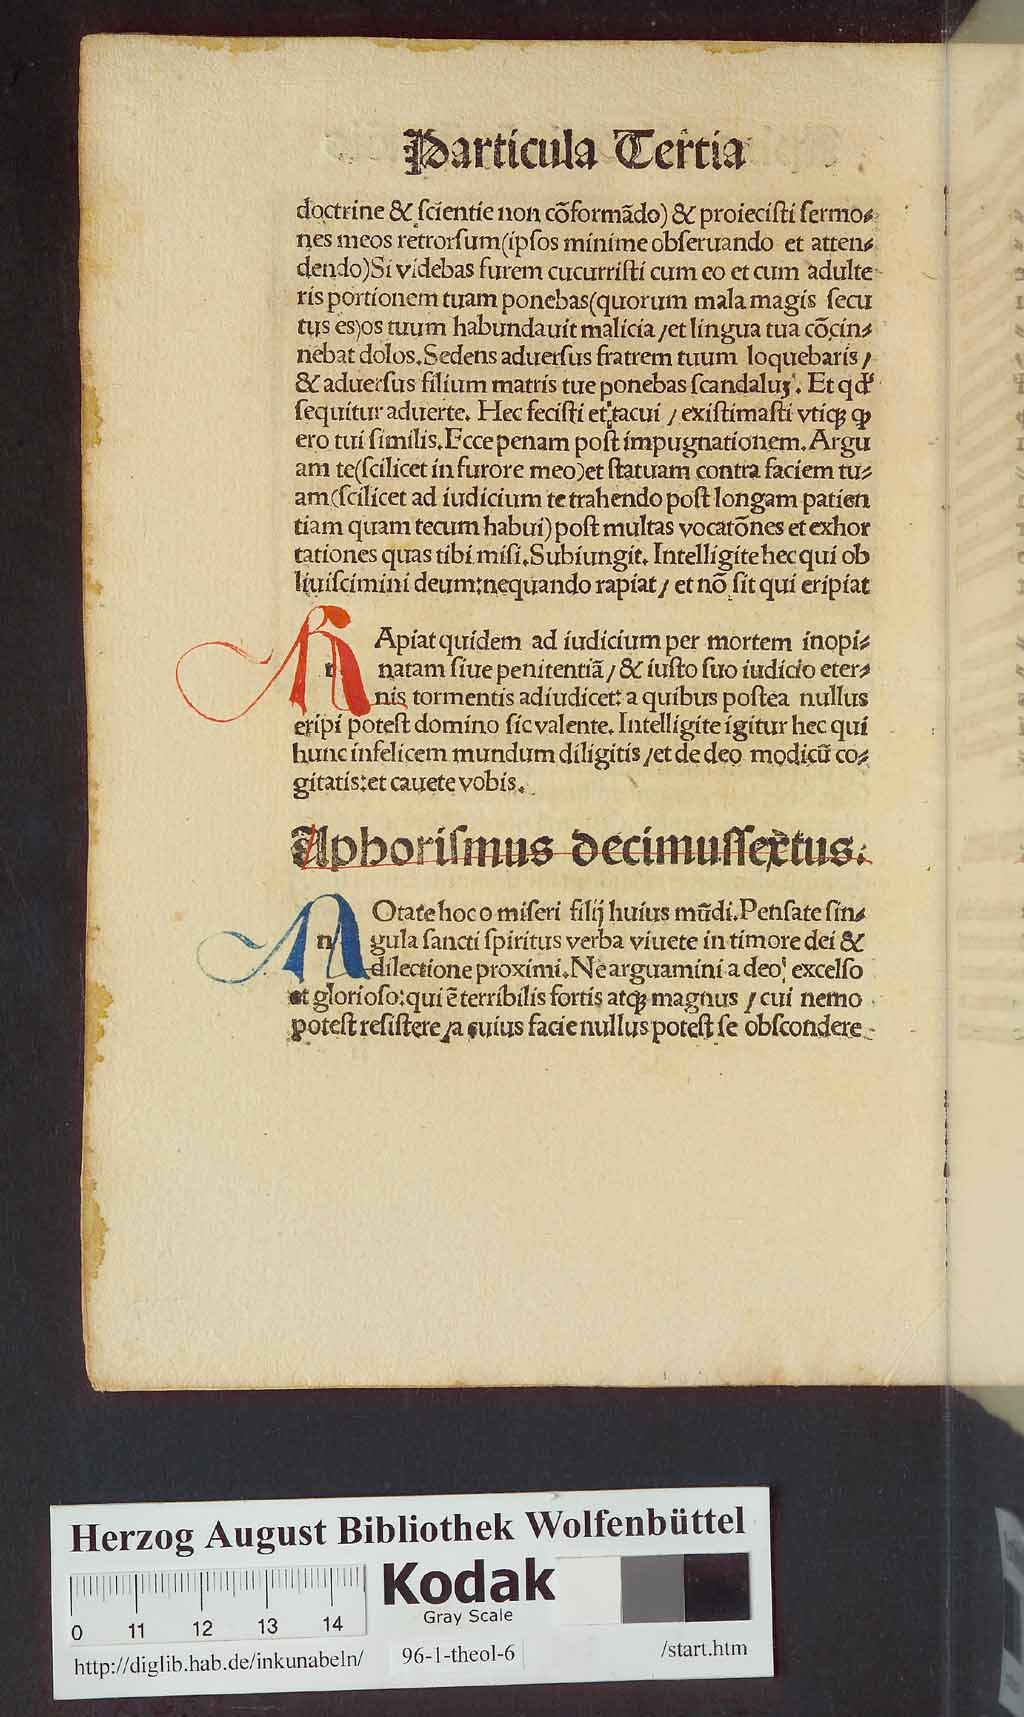 Particula Tertia
doctrine & ſcientie non cõformãdo) & proieciſti ſermo⸗
nes meos retrorſum(ipſos minime obſeruando et atten⸗
dendo)Si videbas furem cucurriſti cum eo et cum adulte
ris portionem tuam ponebas(quorum mala magis ſecu
tus es)os tuum habundauit malicia /et lingua tua cõcin⸗
nebat dolos.Sedens aduerſus fratrem tuum loquebaris /
& aduerſus filium matris tue ponebas ſcandaluꝫ. Et qd'
ſequitur aduerte. Hec feciſti et tacui / exiſtimaſti vtiqꝫ ꝙ
ero tui ſimilis.Ecce penam poſt impugnationem.Argu
am te(ſcilicet in furore meo)et ſtatuam contra faciem tu⸗
am(ſcilicet ad iudicium te trahendo poſt longam patien
tiam quam tecum habui) poſt multas vocatõnes et exhor
tationes quas tibi miſi.Subiungit. Intelligite hec qui ob
liuiſcimini deum:nequando rapiat / et nõ ſit qui eripiat
r Apiat quidem ad iudicium per mortem inopi⸗
natam ſiue penitentiã / & iuſto ſuo iudicio eter⸗
nis tormentis adiudicet: a quibus poſtea nullus
eripi poteſt domino ſic valente. Intelligite igitur hec qui
hunc infelicem mundum diligitis /et de deo modicũ co⸗
gitatis:et cauete vobis.
Aphoriſmus decimuſſextus.
n Otate hoc o miſeri filij huius mũdi.Penſate ſin⸗
gula ſancti ſpiritus verba viuete in timore dei &
dilectione proximi.Ne arguamini a deo excelſo
et glorioſo:qui ẽ terribilis fortis atqꝫ magnus / cui nemo
poteſt reſiſtere /a cuius facie nullus poteſt ſe obſcondere
Herzog August Bibliothek Wolfenbüttel
Kodak
Gray Scale
0 11 12 13 14
http://diglib.hab.de/inkunabeln/ 96-1-theol-6 /start.htm